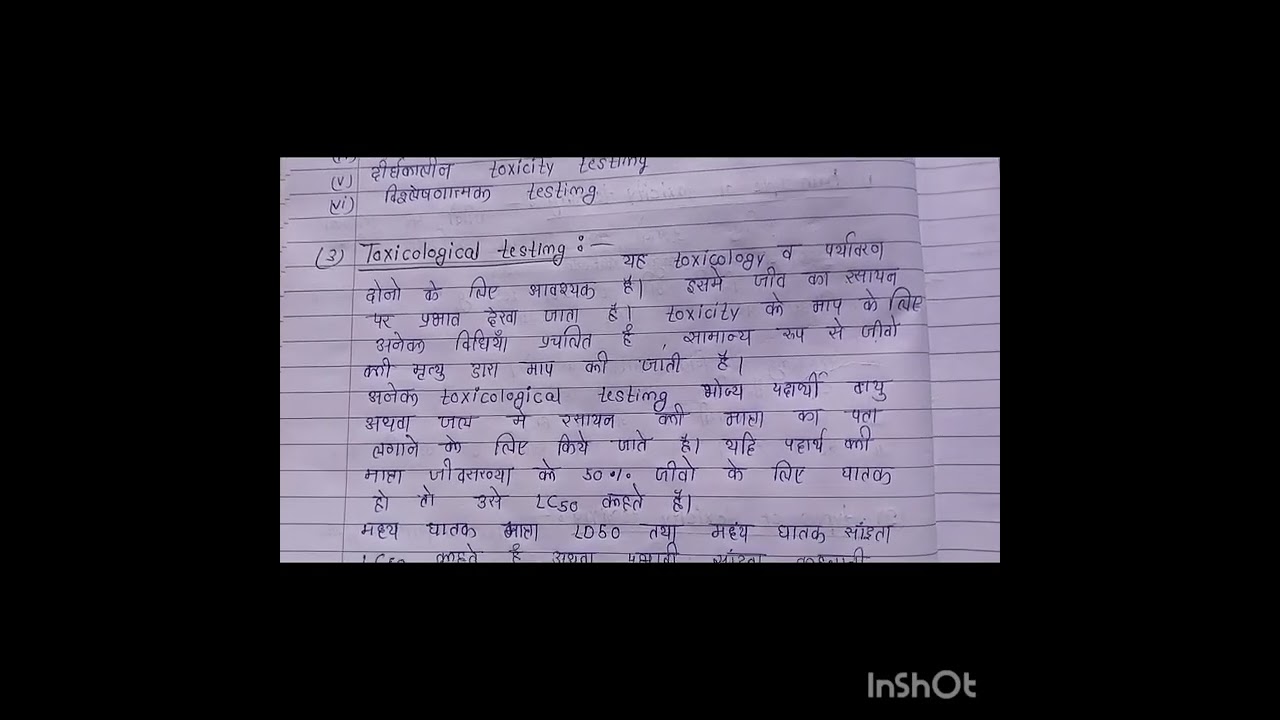 (v) दीर्घकालीन toxicity testing
(vi) विश्लेषणात्मक testing
(3) Toxicological testing :— यह toxicology व पर्यावरण
दोनो के लिए आवश्यक है। इसमे जीव का रसायन
पर प्रभाव देखा जाता है। toxicity के माप के लिए
अनेक विधियाँ प्रचलित है , सामान्य रुप से जीवो
की मृत्यु द्वारा माप की जाती है।
अनेक toxicological testing भोज्य पदार्थी वायु
अथवा जल मे रसायन की मात्रा का पता
लगाने के लिए किये जाते है। यदि पदार्थ की
मात्रा जीवसंख्या के 50% जीवो के लिए घातक
हो तो उसे LC50 कहते है।
मध्य घातक मात्रा LD50 तथा मध्य घातक सांद्रता
LC50 कहते है अथवा
InShOt